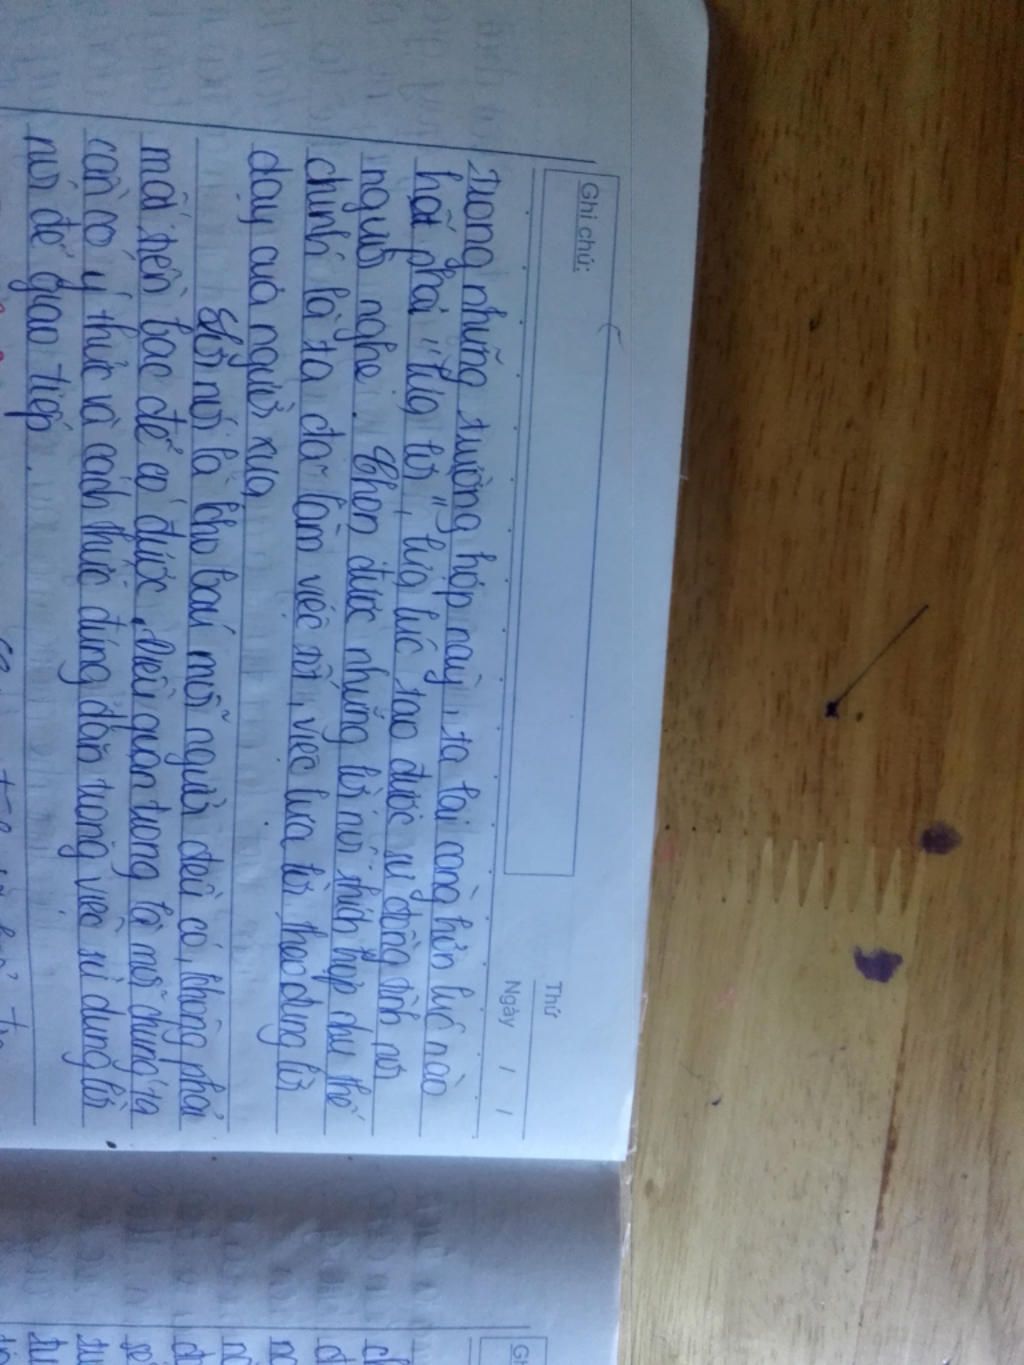 Ghi chú:
Thứ
Ngày / /
Trong những trường hợp này, ta lại càng hơn lúc nào
hết phải "lựa lời", lựa lúc tạo được sự đồng tình nơi
người nghe. Chọn được những lời nói thích hợp như thế
chính là ta đã làm việc rồi, việc lựa lời theo đúng lời
dạy của người xưa
Lời nói là kho báu mỗi người đều có, không phải
mất tiền bạc để có được. Điều quan trọng là mỗi chúng ta
cần có ý thức và cách thức đúng đắn trong việc sử dụng lời
nói để giao tiếp.